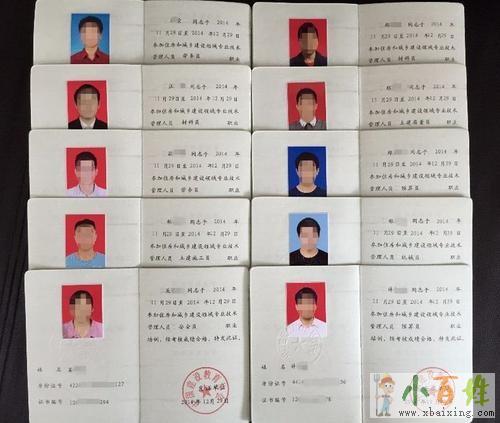 同志于 2014 年
11月29日至 2014 年12月29日
参加住房和城乡建设领域专业技术
管理人员 劳务员 职业
同志于 2014 年
11月29日至 2014 年12月29日
参加住房和城乡建设领域专业技术
管理人员 材料员 职业
江 同志于 2014 年
11月29日至 2014 年12月29日
参加住房和城乡建设领域专业技术
管理人员 材料员 职业
同志于 2014 年
11月29日至 2014 年12月29日
参加住房和城乡建设领域专业技术
管理人员 土建质量员 职业
同志于 2014 年
11月29日至 2014 年12月29日
参加住房和城乡建设领域专业技术
管理人员 劳务员 职业
同志于 2014 年
11月29日至 2014 年12月29日
参加住房和城乡建设领域专业技术
管理人员 预算员 职业
同志于 2014 年
11月29日至 2014 年12月29日
参加住房和城乡建设领域专业技术
管理人员 土建施工员 职业
同志于 2014 年
11月29日至 2014 年12月29日
参加住房和城乡建设领域专业技术
管理人员 机械员 职业
同志于 2014 年
11月29日至 2014 年12月29日
参加住房和城乡建设领域专业技术
管理人员 安全员 职业
培训，经考核成绩合格，特发此证。
姓 名
身份证号 422 127
证书编号 120 294
发证单位
2014年12月29日
同志于 2014 年
11月29日至 2014 年12月29日
参加住房和城乡建设领域专业技术
管理人员 预算员 职业
培训，经考核成绩合格，特发此证。
姓 名
身份证号 56
证书编号
小百姓
www.xbaixing.com